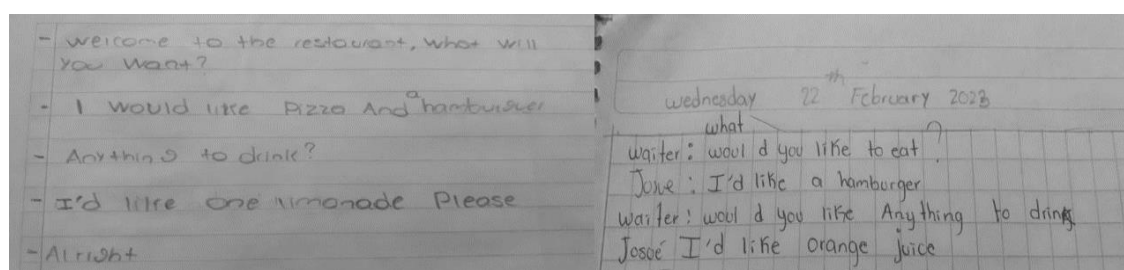 - Welcome to the restaurant, what will
you want?
- I would like Pizza And a hamburguer
- Anything to drink?
- I'd like one limonade Please
- Alright
wednesday 22th February 2023
what
waiter: would you like to eat?
Josue: I'd like a hamburger
waiter: would you like Anything to drink
Josué I'd like orange juice